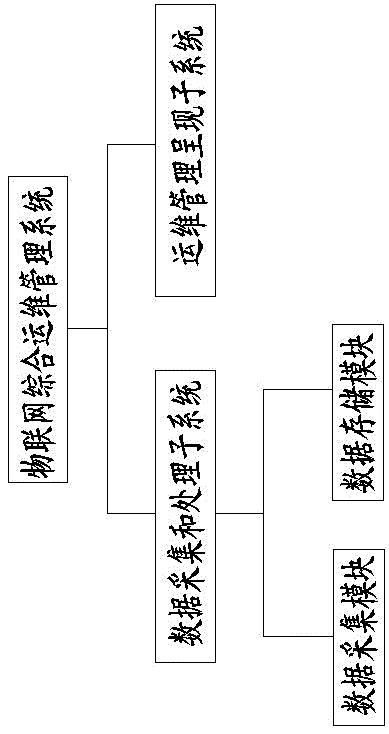 物联网综合运维管理系统
数据采集和处理子系统
运维管理呈现子系统
数据采集模块
数据存储模块